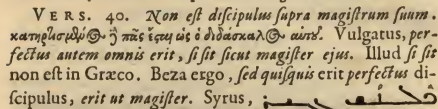 VERS. 40. Non eſt diſcipulus ſupra magiſtrum ſuum.
κατηρτισμένος ὃ πᾶς ἔςαι ὡς ὁ διδασκαλος αὐτου. Vulgatus, per-
fectus autem omnis erit, ſi ſit ſicut magiſter ejus. Illud ſi ſit
non eſt in Græco. Beza ergo, ſed quiſquis erit perfectus di-
ſcipulus, erit ut magiſter. Syrus,